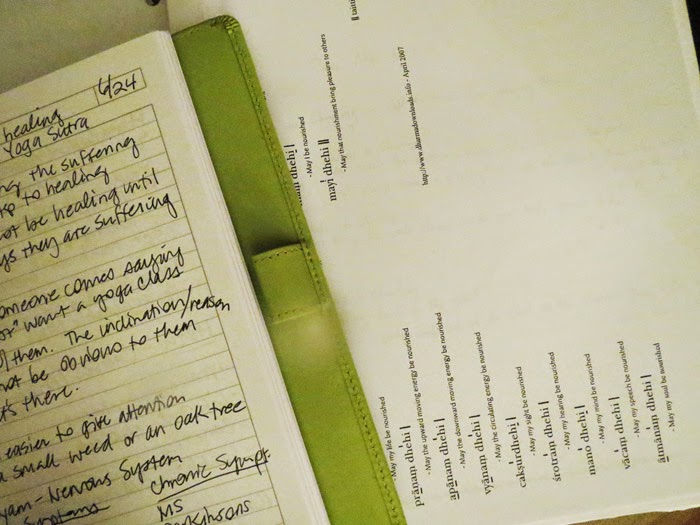 6/24
healing
Yoga Sutra
the suffering
to healing
ot be healing until
ys they are suffering
omeone comes saying
or" want a yoga class
them. The inclination/reason
not be obvious to them
t's there.
easier to give attention
a small weed or an oak tree
yam - Nervous System
Chronic Sympt.
MS
arkinsons
dhehi |
- May I be nourished
mayi dhehi ||
- May that nourishment bring pleasure to others
http://www.dharmadownloads.info - April 2007
- May my life be nourished
prāṇaṁ dhehi |
- May the upward moving energy be nourished
apānaṁ dhehi |
- May the downward moving energy be nourished
vyānaṁ dhehi |
- May the circulating energy be nourished
cakṣurdhehi |
- May my sight be nourished
śrotraṁ dhehi |
- May my hearing be nourished
mano dhehi |
- May my mind be nourished
vācaṁ dhehi |
- May my speech be nourished
ātmānaṁ dhehi |
- May my soul be nourished